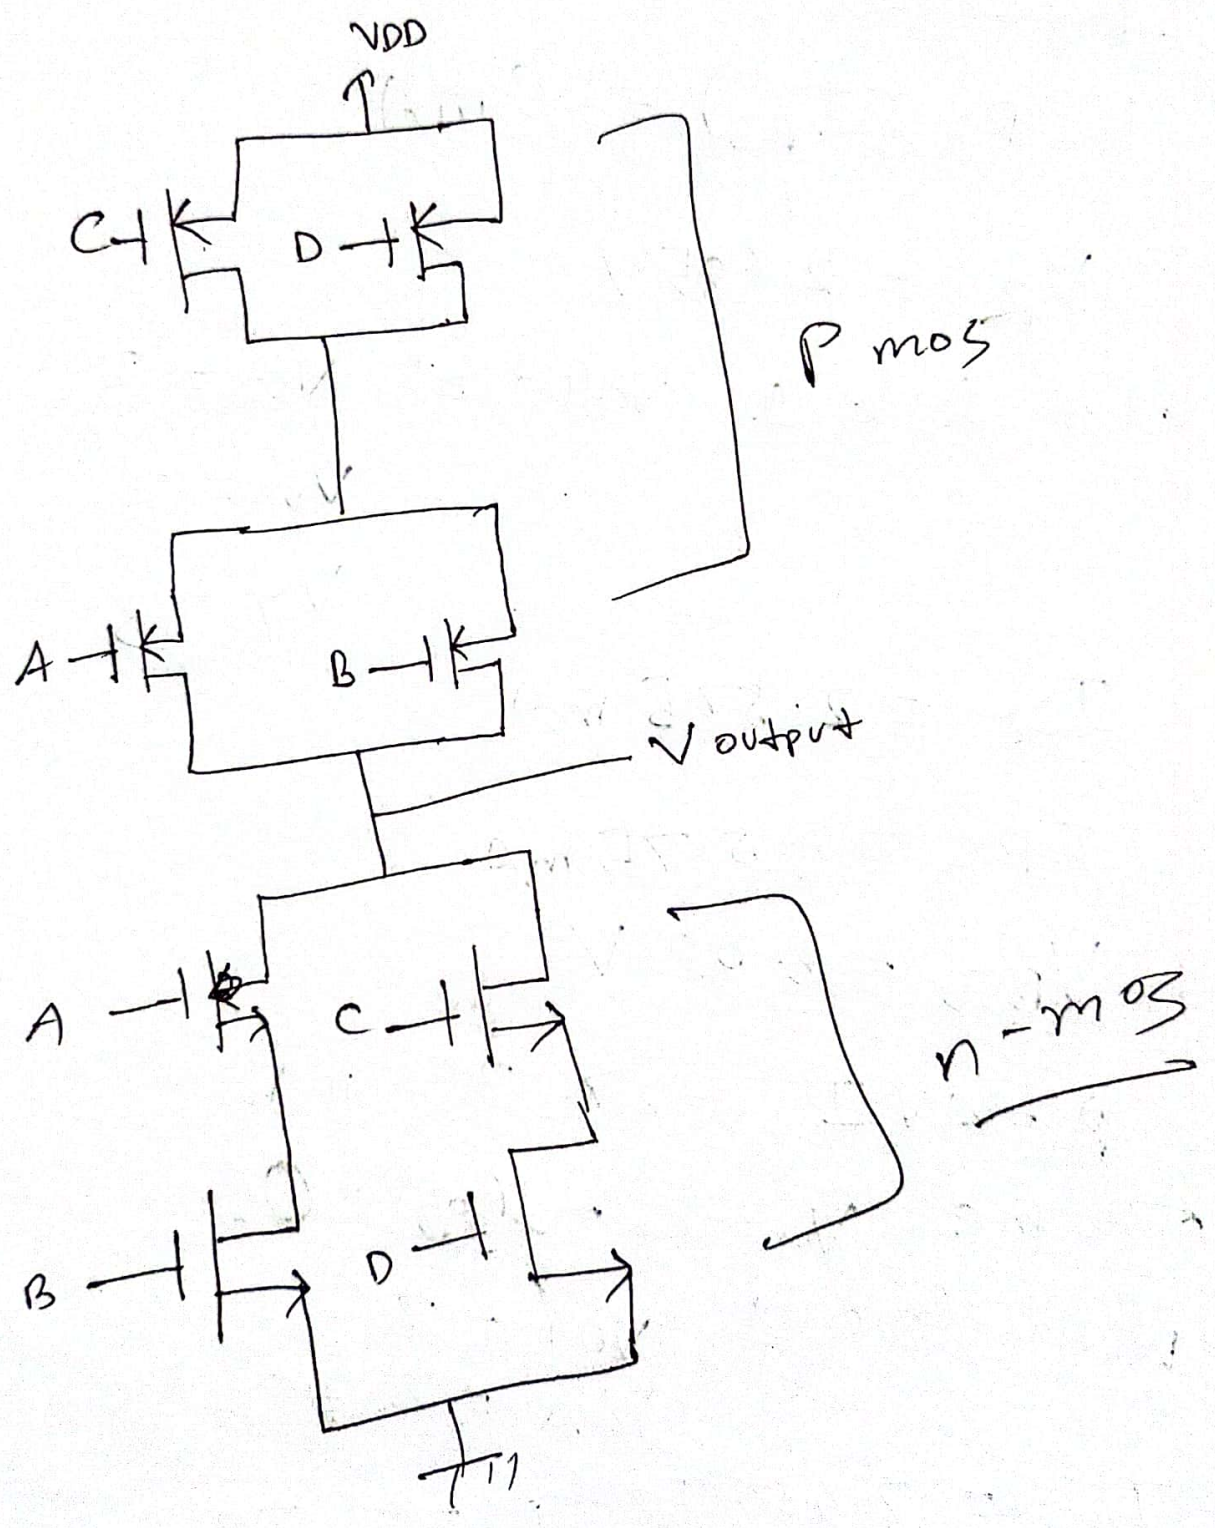 VDD
C
D
P mos
A
B
Voutput
A
C
n-mos
B
D